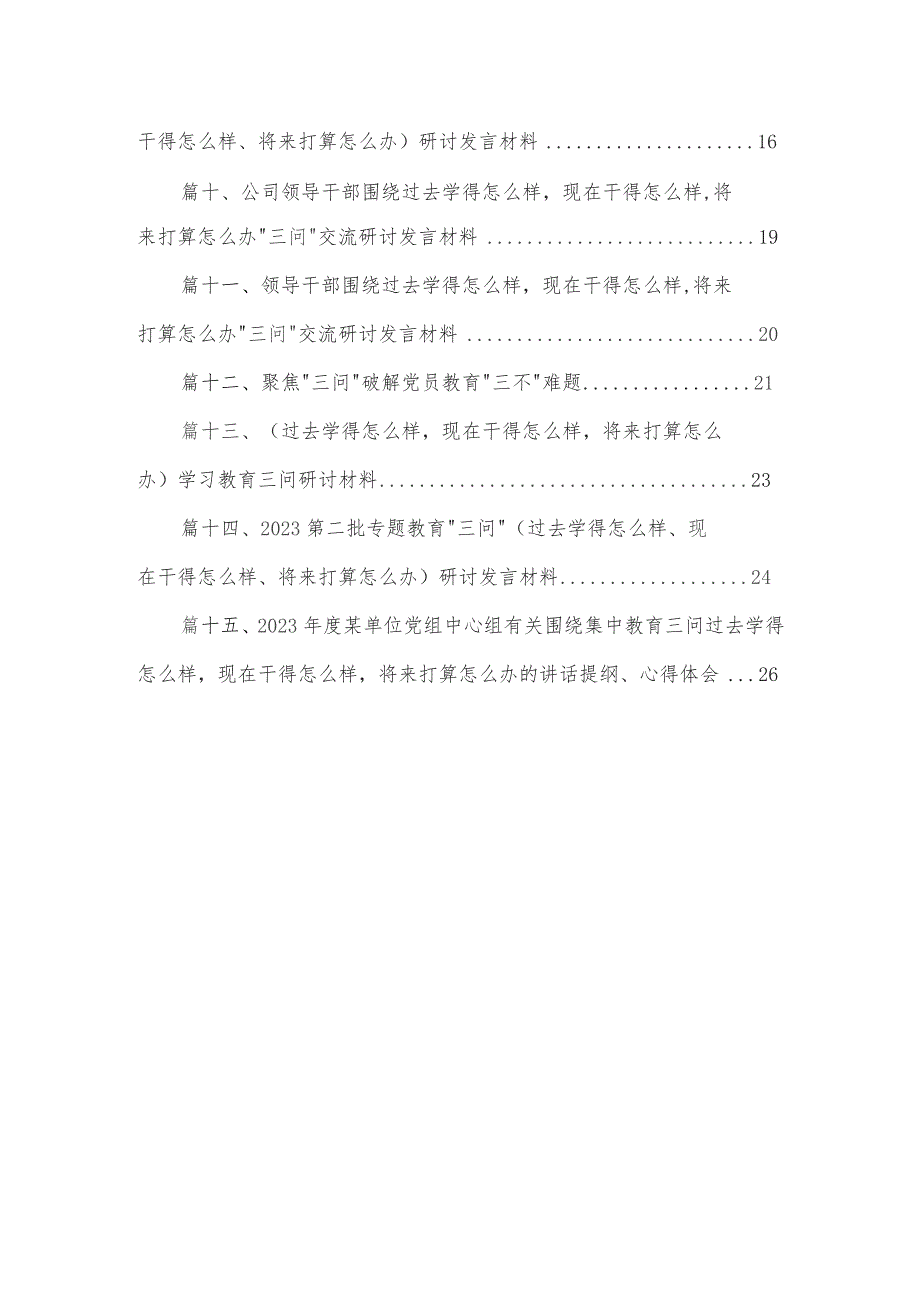 干得怎么样、将来打算怎么办）研讨发言材料 .....................16
篇十、公司领导干部围绕过去学得怎么样，现在干得怎么样,将
来打算怎么办"三问"交流研讨发言材料 ...........................19
篇十一、领导干部围绕过去学得怎么样，现在干得怎么样,将来
打算怎么办"三问"交流研讨发言材料 .............................20
篇十二、聚焦"三问"破解党员教育"三不"难题.................21
篇十三、（过去学得怎么样，现在干得怎么样，将来打算怎么
办）学习教育三问研讨材料.....................................23
篇十四、2023 第二批专题教育"三问"（过去学得怎么样、现
在干得怎么样、将来打算怎么办）研讨发言材料...................24
篇十五、2023 年度某单位党组中心组有关围绕集中教育三问过去学得
怎么样，现在干得怎么样，将来打算怎么办的讲话提纲、心得体会 ...26